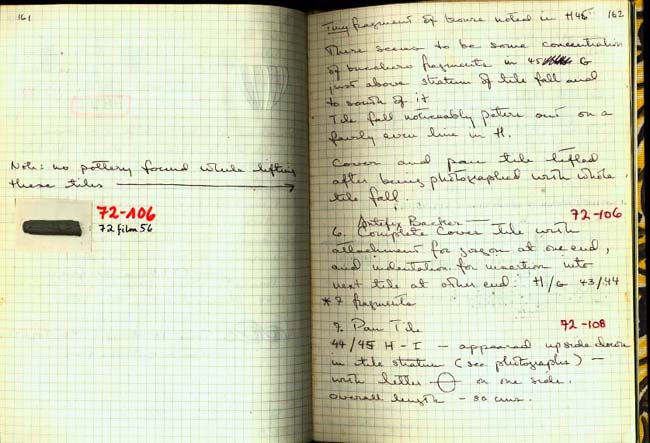 161
Note: no pottery found while lifting
these tiles
72-106
72 film 56
162
Tiny fragment of bronze noted in H45
There seems to be some concentration
of bucchero fragments in 45 G
just above stratum of tile fall and
to south of it
Tile fall noticeably peters out on a
fairly even line in H.
Cover and pan tile lifted
after being photographed with whole
tile fall.
Antefix Backer
72-106
6. Complete Cover tile with
attachment for gorgon at one end,
and indentation for insertion into
next tile at other end. H/G 43/44
* 7 fragments
7. Pan Tile
72-108
44/45 H-I - appeared upside down
in tile stratum (see photographs) -
with letter on one side.
overall length - 50 cms.